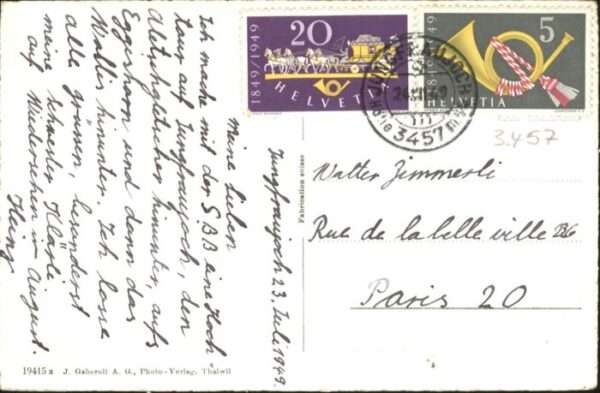 Jungfraujoch 23. Juli 1949.
Meine Lieben
Ich mache mit der SBB eine Hoch-
tour auf Jungfraujoch, den
Aletschgletscher hinunter, aufs
Eggishorn und dann das
Wallis hinunter. Ich lasse
alle grüssen, besonders
meine Schwester Klärli
auf Wiedersehen im August.
Heinz
19415a J. Gaberell A. G., Photo-Verlag, Thalwil
Fabrication suisse
20
1849/1949
HELVETIA
5
1849/1949
HELVETIA
JUNGFRAUJOCH
3457 m
3.457
Walter Zimmerli
Rue de la belle ville
Paris 20